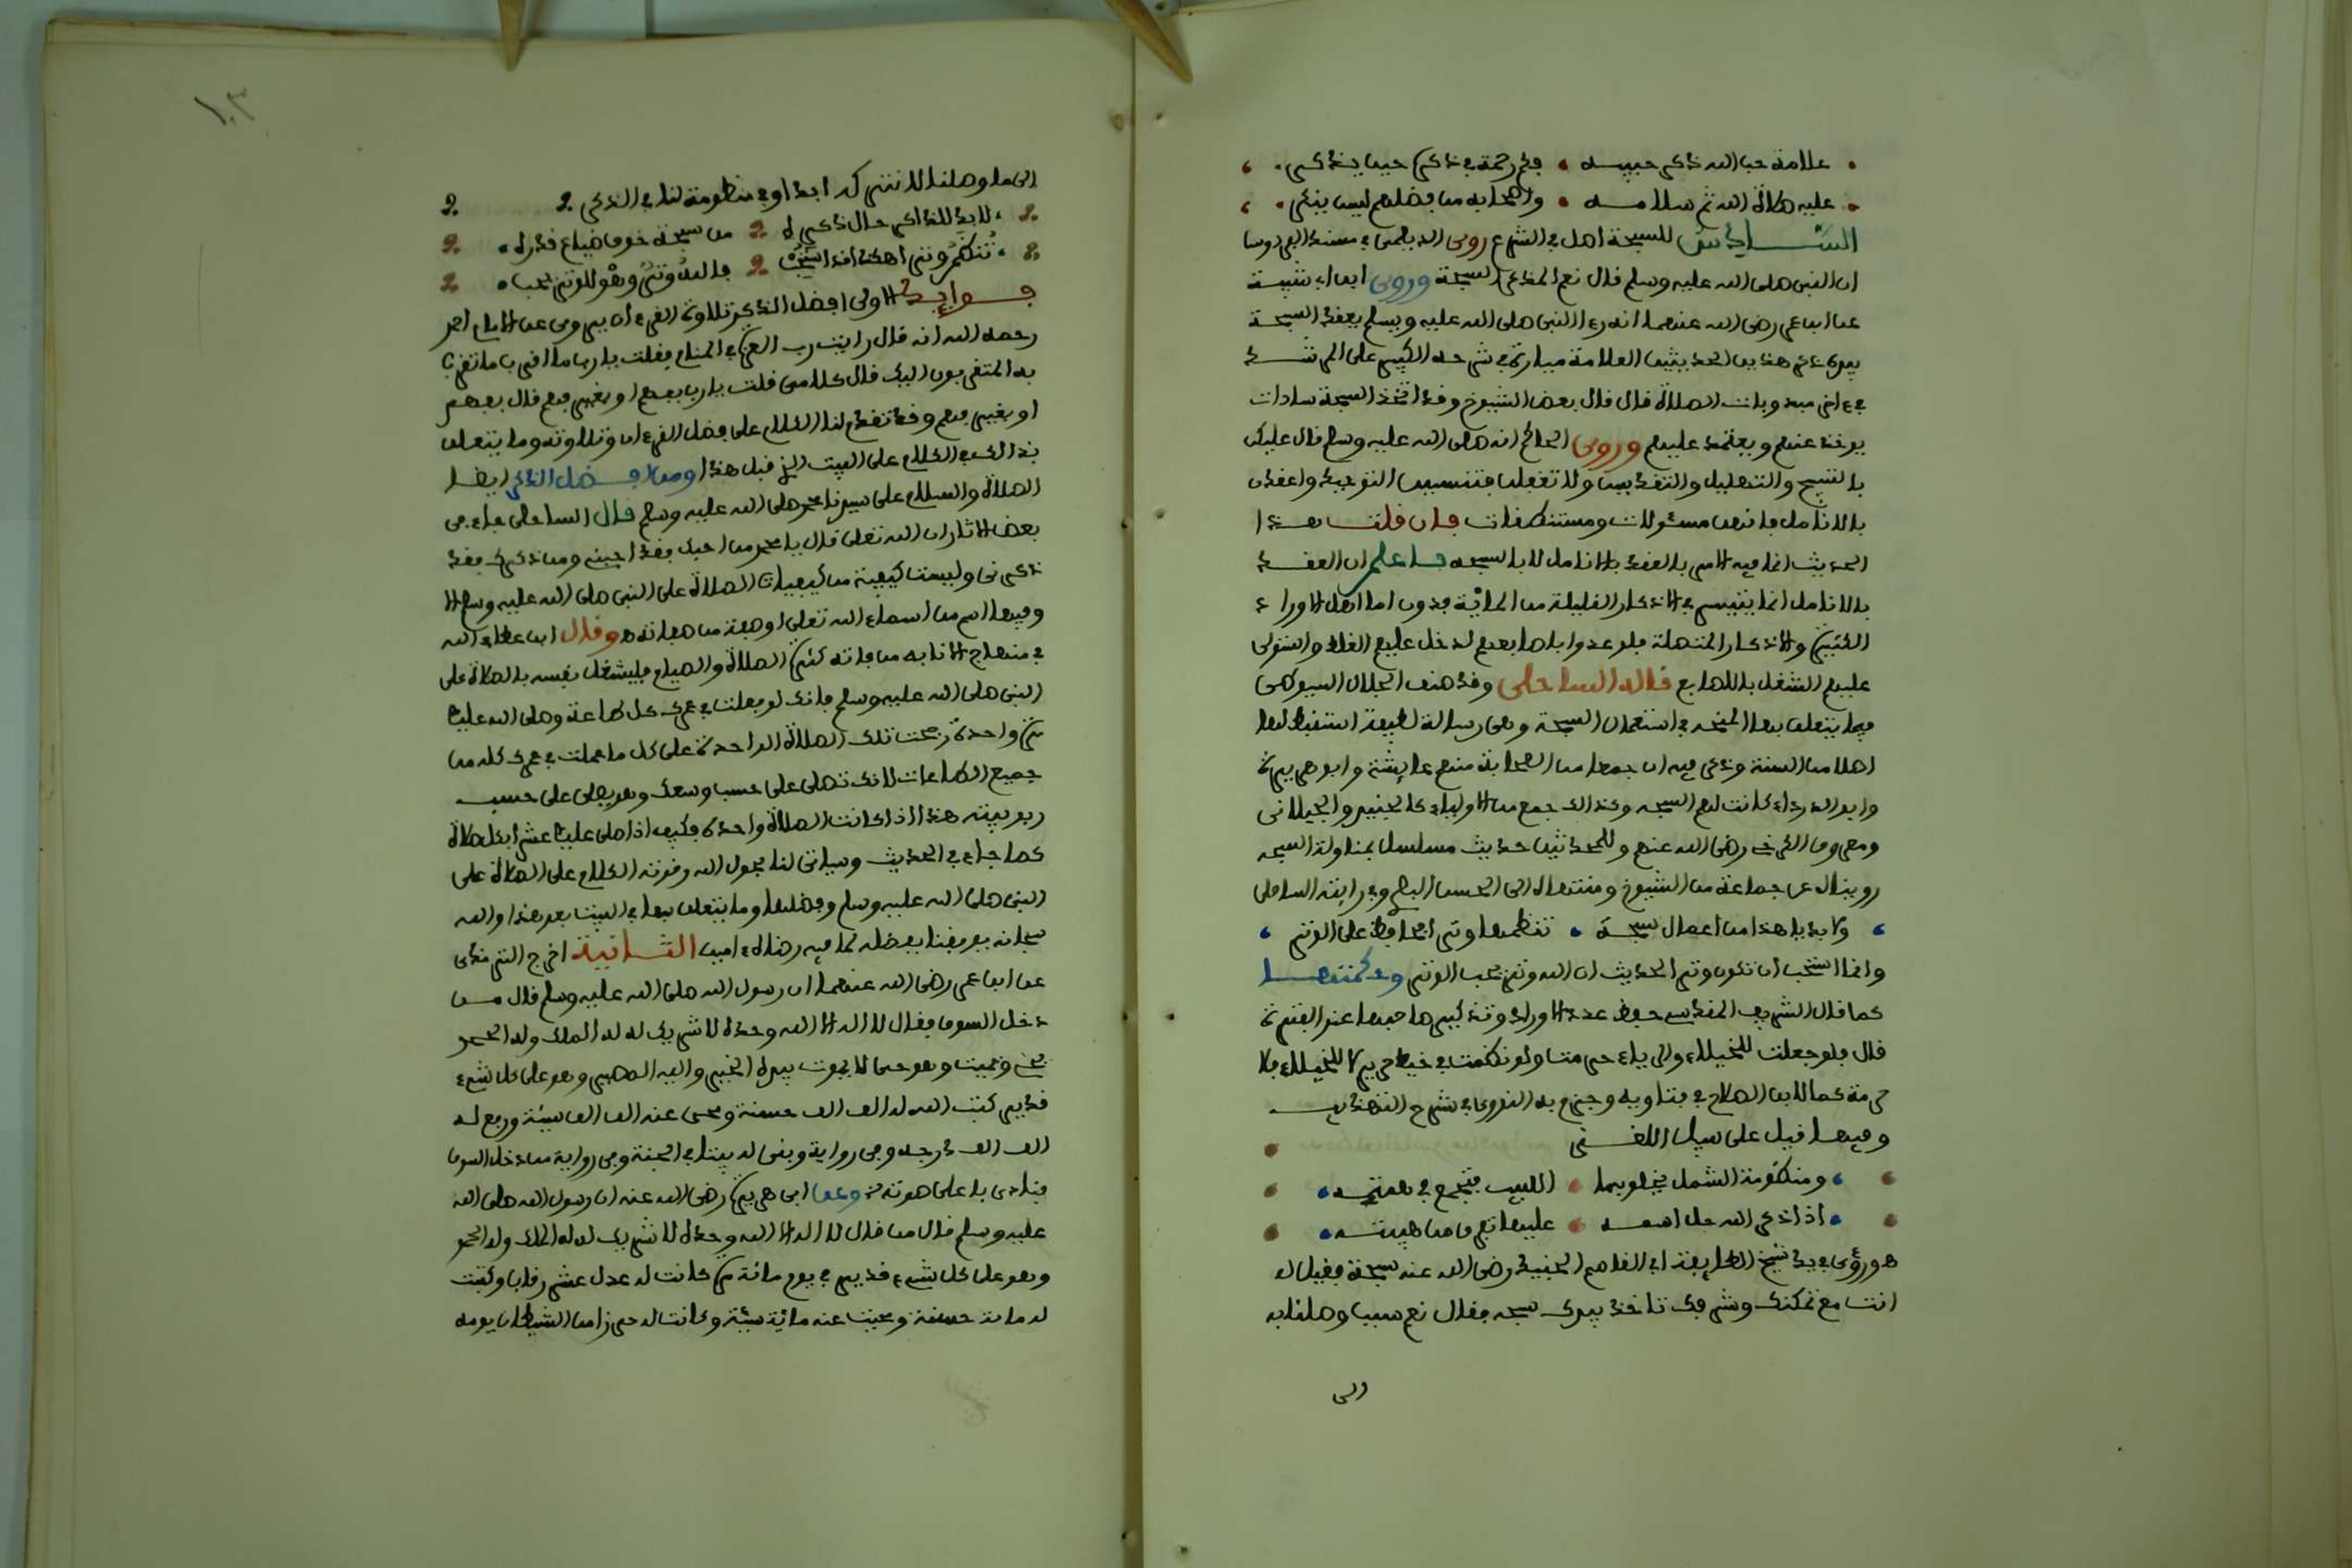 علامة حب الله ذكر حبيبه • فلا رحمة في ذكر حيث يذكر
عليه صلاة الله ثم سلامه • وأصحابه من فضلهم ليس ينكر
السادس للسبحة اصل في الشرع روى الديلمي في مسند الفردوس
ان النبي صلى الله عليه وسلم قال نعم المذكر السبحة وروى ابن ابي شيبة
عن ابن عمر رضي الله عنهما انه رءا النبي صلى الله عليه وسلم يعقد السبحة
بيده ذكر هذين الحديثين العلامة ميارة في شرحه الكبير على المرشد
في ءاخر مندوبات الصلاة قال قال بعض الشيوخ وقد اتخذ السبحة سادات
يؤخذ عنهم ويعتمد عليهم وروى الحاكم انه صلى الله عليه وسلم قال عليكن
بالتسبيح والتهليل والتقديس ولا تغفلن فتنسين التوحيد واعقدن
بالانامل فانهن مسئولات ومستنطقات فان قلت هذا
الحديث انما فيه الامر بالعقد بالانامل لا بالسبحة فاعلم ان العقد
بالانامل انما يتيسر في الاذكار القليلة من المائة فدون اما اهل الاوراد
الكثيرة والاذكار المتصلة فلو عدوا باصابعهم لدخل عليهم الغلط واستولى
عليهم الشغل بالاصابع قاله الساحلي وقد صنف الجلال السيوطي
فيما يتعلق بها المنحة في استعمال السبحة وهي رسالة لطيفة استنبط لها
اصلا من السنة وذكر فيه ان جمعا من الصحابة منهم عايشة وابو هريرة
وابو الدرداء كانت لهم السبحة وكذلك جمع من الاولياء كالجنيد والجيلاني
ومعروف الكرخي رضي الله عنهم وللمحدثين حديث مسلسل بمناولة السبحة
رويناه عن جماعة من الشيوخ ومنتهاه الى الحسن البصري وفي رايته الساحلي
ولا بد يا هذا من اعمال سبحة • تنظمها وترا تحافظ على الوتر
وانما استحب ان تكون وترا لحديث ان الله وتر يحب الوتر وحكمتها
كما قال الشريف المقدسي حفظ عدد الاوراد وتذكيرها صاحبها عند الفترة
قال فلو جعلت للخيلاء والرياء حرمت ولو نظمت في خيط حرير لا للخيلاء فلا
حرمة كما لابن الصلاح في فتاويه وجزم به النووي في شرح المهذب
وفيها قيل على سبيل اللغز
ومنظومة الشمل يخلو بها • اللبيب فتجمع في همته
اذا ذكر الله جل اسمه • عليها تفرق من هيبته
ورؤي في يد شيخ الطريقة ابي القاسم الجنيد رضي الله عنه سبحة فقيل له
انت مع تمكنك وشرفك تاخذ بيدك سبحة فقال نعم سبب وصلنا به
الى
١٠٣
الى ما وصلنا لا نتركه ابدا وفي منظومة لنا في الذكر
لا بد للذاكر حال ذكره • من سبحة خوف ضياع قدره
تنظم وترا هكذا استحب • فالله وتر وهو للوتر يحب
فوايد الاولى افضل الذكر تلاوة القرءان يروى عن الامام احمد
رحمه الله انه قال رايت رب العزة في المنام فقلت يا رب ما افضل ما تقرب
به المتقربون اليك قال كلامي قلت يا رب بفهم او بغير فهم قال بفهم
او بغير فهم وقد تقدم لنا الكلام على فضل القرءان وتلاوته وما يتعلق
بذلك في الكلام على البيت الذي قبل هذا ومن افضل الذكر ايضا
الصلاة والسلام على سيدنا محمد صلى الله عليه وسلم قال الساحلي جاء في
بعض الاثار ان الله تعلى قال يا محمد من احبك فقد احبني ومن ذكرك فقد
ذكرني وليست كيفية من كيفيات الصلاة على النبي صلى الله عليه وسلم الا
وفيها اسم من اسماء الله تعلى او صفة من صفاته وقال ابن عطاء الله
في مفتاح الانابة من فاته كثرة الصلاة والصيام فليشغل نفسه بالصلاة على
النبي صلى الله عليه وسلم فانك لو فعلت في عمرك كل طاعة وصلى الله عليك
مرة واحدة رجحت تلك الصلاة الواحدة على كل ما عملت في عمرك كله من
جميع الطاعات لانك تصلي على حسب وسعك وهو يصلي على حسب
ربوبيته هذا اذا كانت الصلاة واحدة فكيف اذا صلى عليك عشرا بكل صلاة
كما جاء في الحديث وسياتي لنا بحول الله وقوته الكلام على الصلاة على
النبي صلى الله عليه وسلم وفضلها وما يتعلق بها في البيت بعد هذا والله
سبحانه يوفقنا بفضله لما فيه رضاه ءامين الثانية اخرج الترمذي
عن ابن عمر رضي الله عنهما ان رسول الله صلى الله عليه وسلم قال من
دخل السوق فقال لا اله الا الله وحده لا شريك له له الملك وله الحمد
يحيي ويميت وهو حي لا يموت بيده الخير واليه المصير وهو على كل شيء
قدير كتب الله له الف الف حسنة ومحى عنه الف الف سيئة ورفع له
الف الف درجة وفي رواية وبنى له بيتا في الجنة وفي رواية من دخل السوق
فنادى باعلى صوته وعن ابي هريرة رضي الله عنه ان رسول الله صلى الله
عليه وسلم قال من قال لا اله الا الله وحده لا شريك له له الملك وله الحمد
وهو على كل شيء قدير في يوم مائة مرة كانت له عدل عشر رقاب وكتبت
له مائة حسنة ومحيت عنه مائة سيئة وكانت له حرزا من الشيطان يومه